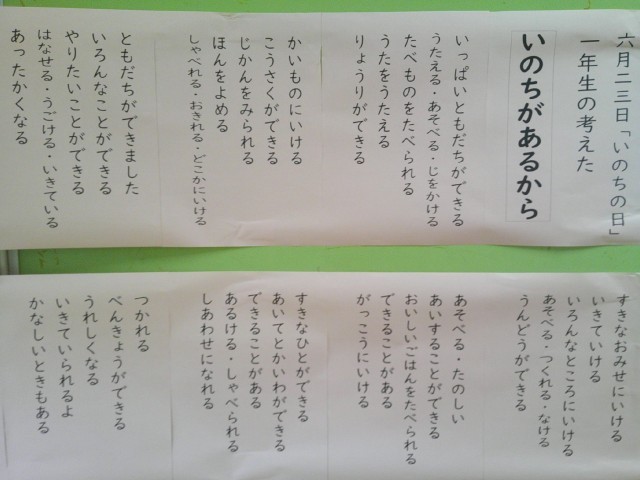 六月二三日「いのちの日」
一年生の考えた
いのちがあるから
いっぱいともだちができる
うたえる・あそべる・じをかける
たべものをたべられる
うたをうたえる
りょうりができる
かいものにいける
こうさくができる
じかんをみられる
ほんをよめる
しゃべれる・おきれる・どこかにいける
ともだちができました
いろんなことができる
やりたいことができる
はなせる・うごける・いきている
あったかくなる
すきなおみせにいける
いきていける
いろんなところにいける
あそべる・つくれる・なける
うんどうができる
あそべる・たのしい
あいすることができる
おいしいごはんをたべられる
できることがある
がっこうにいける
すきなひとができる
あいてとかいわができる
できることがある
あるける・しゃべられる
しあわせになれる
つかれる
べんきょうができる
うれしくなる
いきていられるよ
かなしいときもある